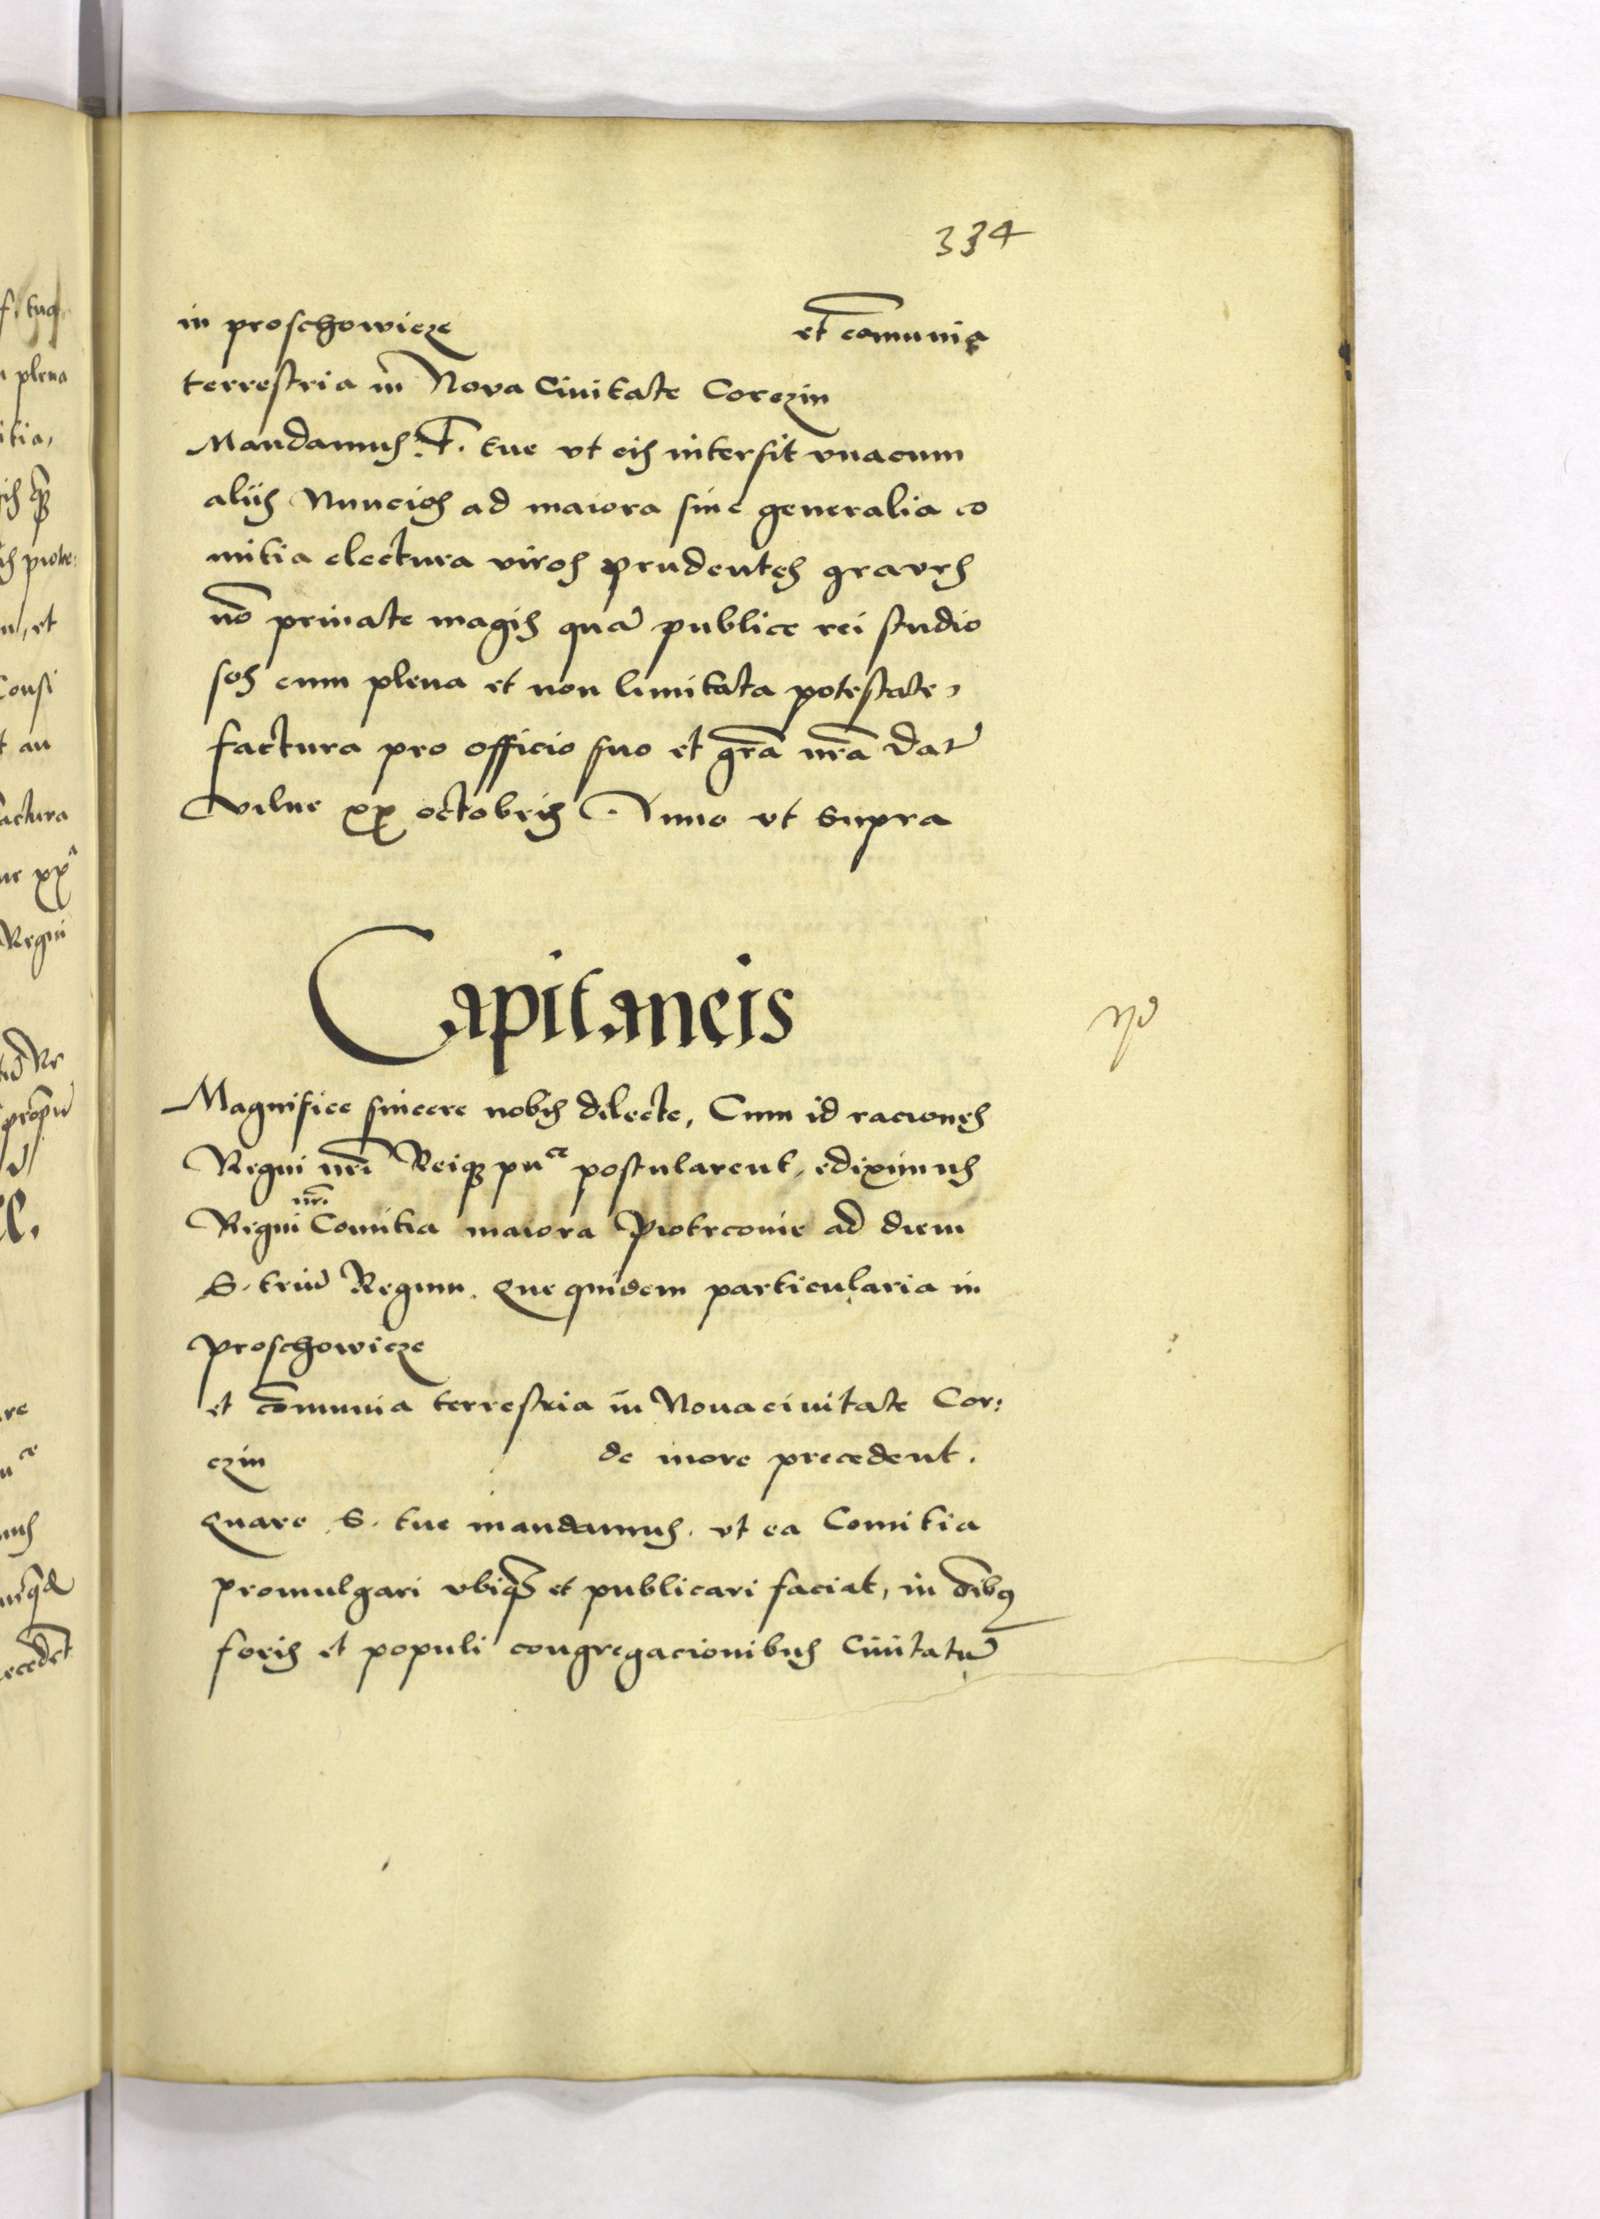 334
in proschowicze et com̄unia
terrestria in Nova Ciuitate Corczin
Mandamus F. tue vt eis intersit vnacum
aliis Nuncios ad maiora siue generalia co
mitia electura viros prudentes graves
nō priuate magis quā publice rei studio
sos cum plena et non limitata potestate,
factura pro officio suo et grā nrā Dat
Vilne xx octobris Anno vt supra
Capitaneis
Magnifice sincere nobis dilecte, Cum id raciones
Regni nrī Reiq; pu^ce postularent, ediximus
nrī
Regni Comitia maiora Piotrconie ad diem
S. triū Regum. Que quidem particularia in
proschowicze
et cōmunia terrestria in Noua ciuitate Cor:
czin de more precedent.
Quare S. tue mandamus. vt ea Comitia
promulgari vbiq; et publicari faciat, in oībus
foris et populi congregacionibus Ciuitatū